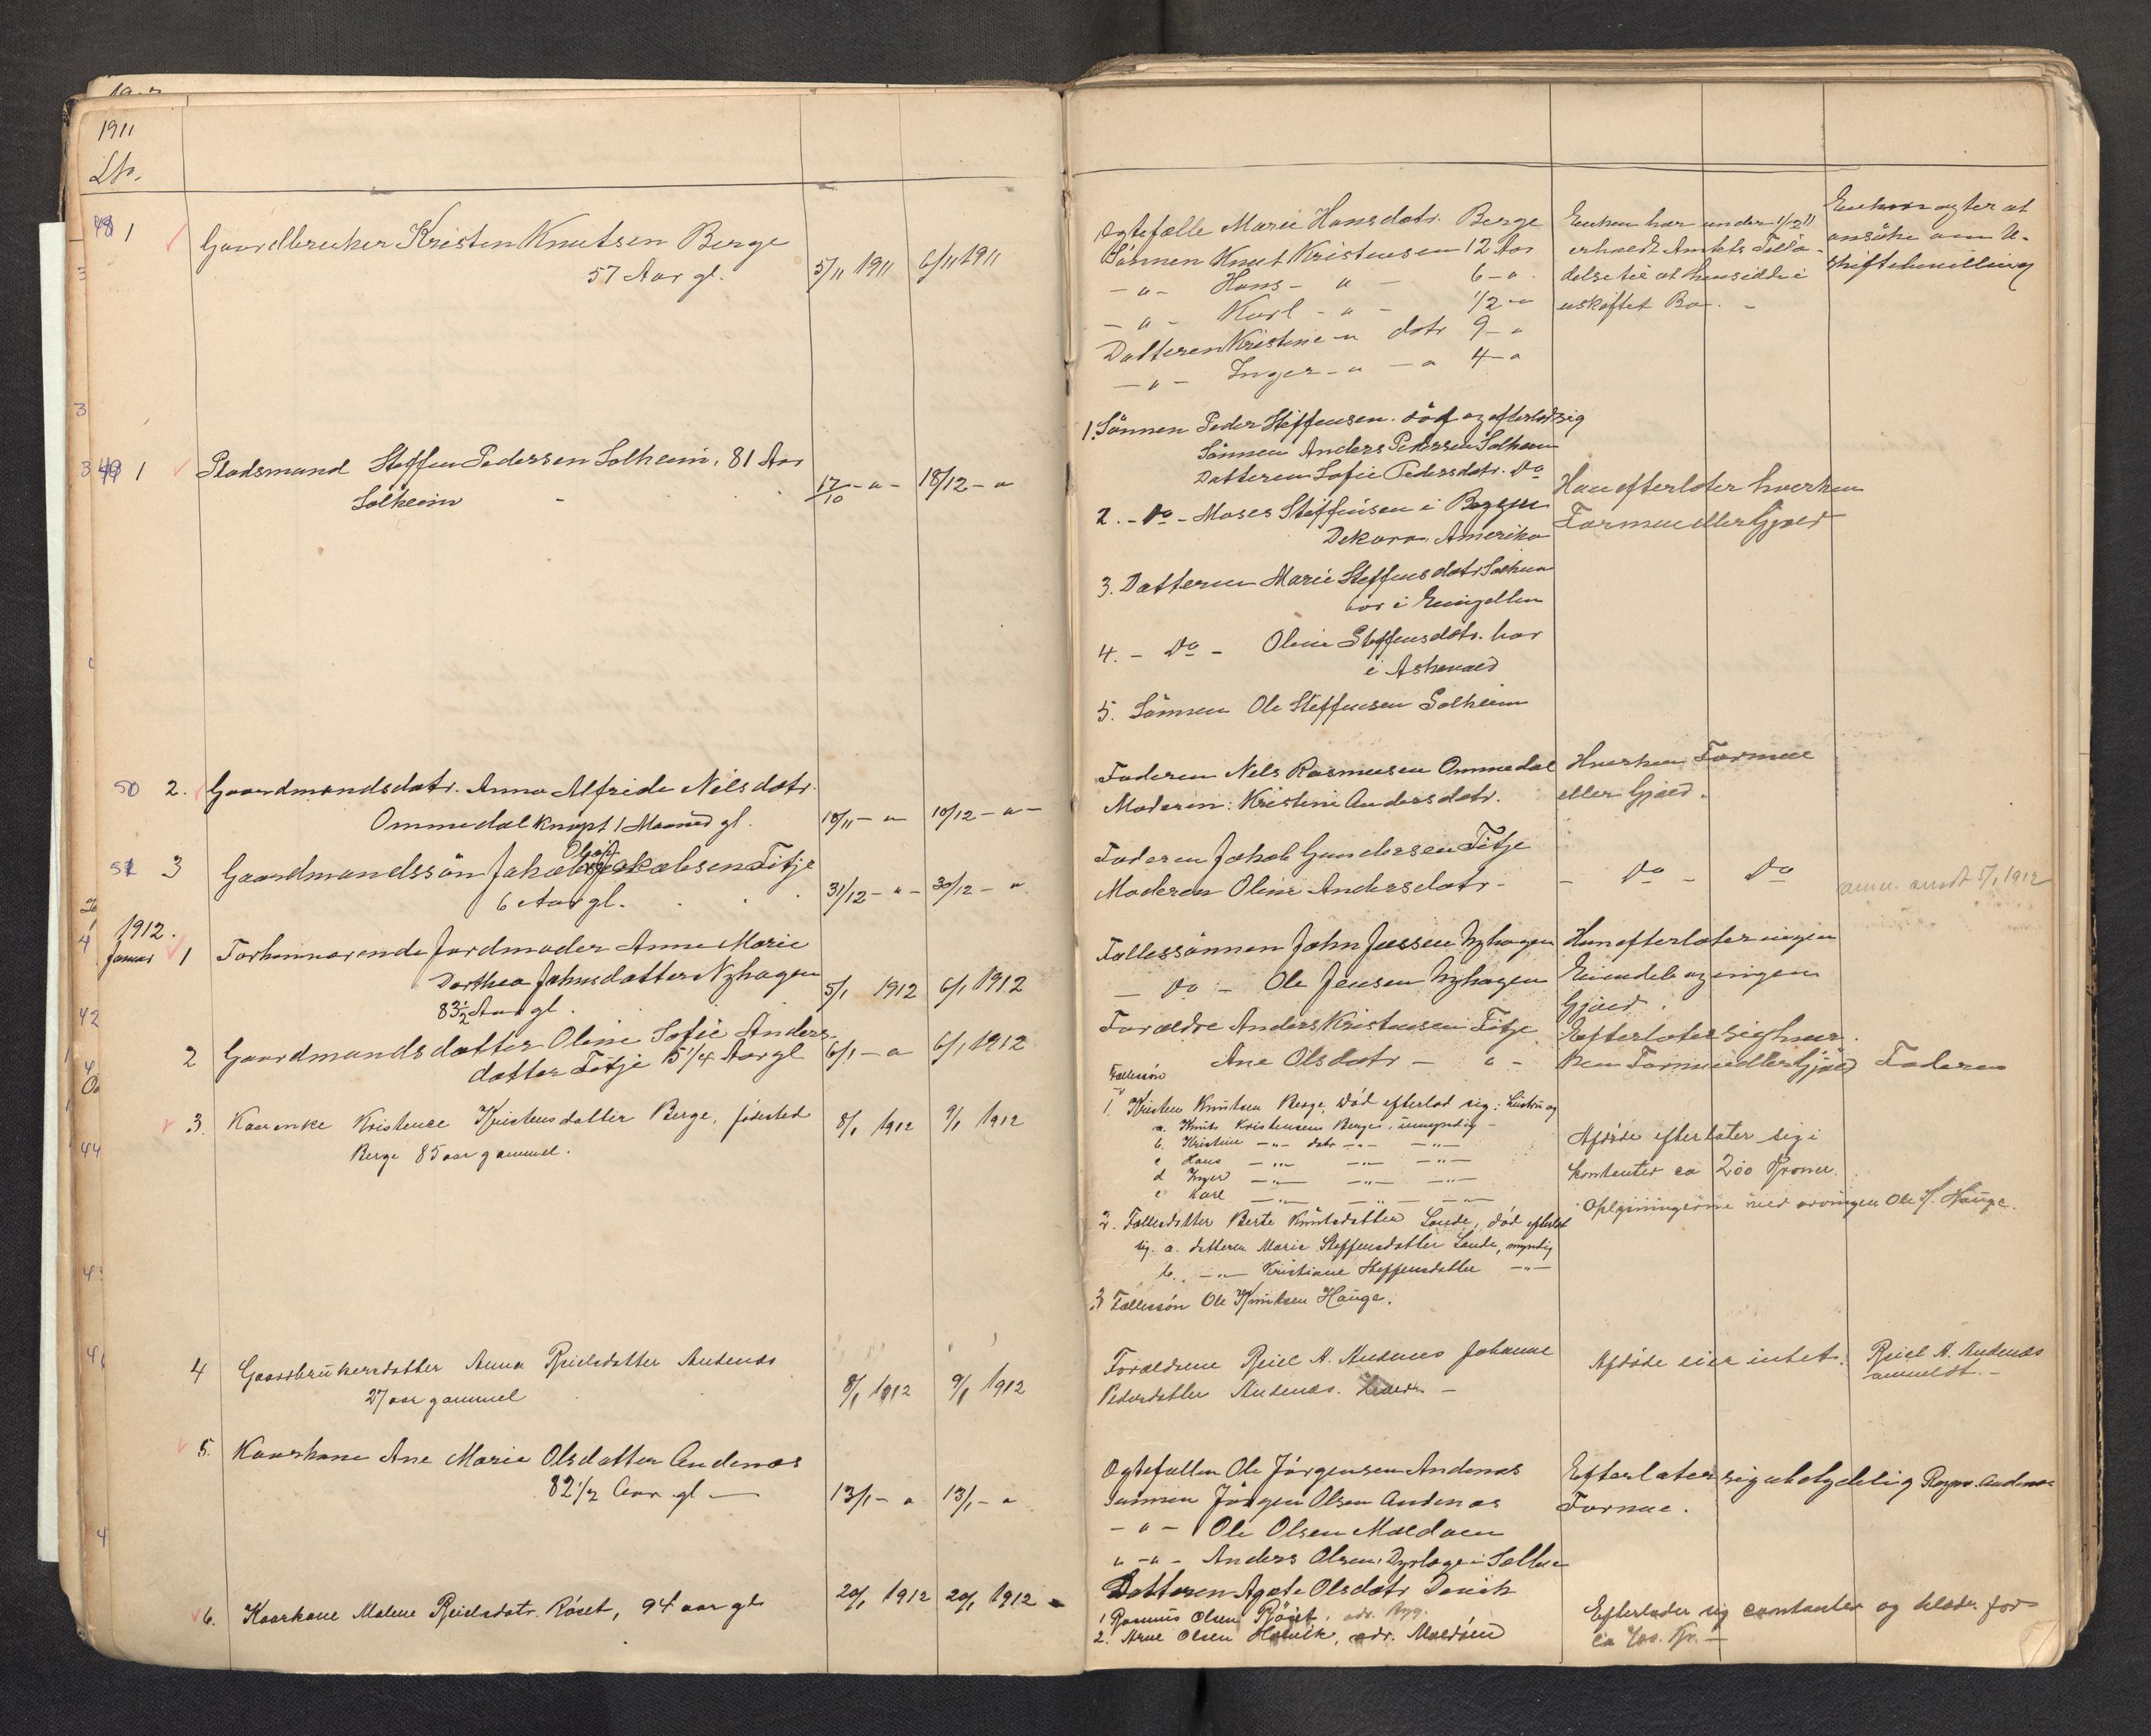 1911
No.
48 1 Gaardbruker Kristen Knutsen Berge
57 Aar gl. 5/11 1911 6/11 1911
Ægtefælle Marie Hansdatr. Berge
Sönnen Knut Kristensen 12 Aar
- " - Hans - " - 6 - "
- " - Karl - " - 1/2 - "
Datteren Kristine - " datr 9 - "
- " - Inger - " - " 4 - "
Enken har under 1/2 11
erholdt Amtets Tilla-
delse til at hensidde i
uskiftet Bo. -
Enken agter at
ansöke om U-
skiftebevilling
49 1 Pladsmand Steffen Pedersen Solheim, 81 Aar
Solheim 17/10 - " - 18/12 - "
1. Sönnen Peder Steffensen. död og efterlod sig
Sönnen Anders Pedersen Solheim
Datteren Sofie Pedersdatr. Do
2. - Do - Moses Steffensen i
Dekora, Amerika
3. Datteren Marie Steffensdatr Solheim
bor i
4. - Do - Oline Steffensdatr. bor
i Askevold
5. Sönnen Ole Steffensen Solheim
Han efterlater hverken
Formue eller Gjæld
50 2. Gaardmandsdatr. Anna Alfride Nilsdatr.
Ommedal knapt 1 Maaned gl. 18/11 - " 10/12 - " -
Faderen Nels Rasmusen Ommedal
Moderen: Kristine Andersdatr.
Hverken Formue
eller Gjæld.
51 3 Gaardmandssön Jakob Olaf Jakobsen Fitje
6 Aar gl. 31/12 - " - 30/12 - "
Faderen Jakob Gundersen Fitje
Moderen Oline Andersdatr -
- Do - Do
anm. sendt 5/1 1912
1912.
Januar 1 Forhenværende Jordmoder Anne Marie
Dorthea Johnsdatter Nyhagen
83 1/2 Aar gl. 5/1 1912 6/1 1912
Fællessönnen John Jensen Nyhagen
- Do - Ole Jensen Nyhagen
Hun efterlater ingen
Eiendele og ingen
Gjæld.
2 Gaardmandsdatter Oline Sofie Anders-
datter Fitje 15 1/4 Aar gl 6/1 - " 6/1 1912
Forældre Anders Kristensen Fitje
Ane Olsdatr - " -
Efterlater sig hver-
ken Formue eller Gjæld Faderen
3. Kaarenke Kristence Kristensdatter Berge, födested
Berge 85 aar gammel. 8/1 1912 9/1 1912
Fællessön
1. Kristen Knutsen Berge, död efterlod sig: hustru og
a. Knut Kristensen Berge, umyndig -
b. Kristine - " - datr - " - - " -
c Hans - " - - " - - " -
d Inger - " - - " - - " -
e Karl - " - - " - - " -
2. Fællesdatter Berte Knutsdatter Lande, död efterlot
sig. a. datteren Marie Steffensdatter Lande, myndig
b. - " - Kristiane Steffensdatter - " -
3 Fællessön Ole Knutsen Hauge.
Afdöde efterlater sig i
kontanter ca 200 Kroner.
Oplysningerne ved arvingen Ole K. Hauge.
4 Gaardbrukersdatter Anna Reielsdatter Andenæs
27 aar gammel 8/1 1912 9/1 1912
Forældrene Reiel A. Andenæs Johanne
Pedersdatter Andenæs.
Afdöde eier intet.
Reiel A. Andenæs
anmeldt. -
5. Kaarkone Ane Marie Olsdatter Andenæs
82 1/2 Aar gl - 13/1 - " 13/1 - "
Ægtefællen Ole Jörgensen Andenæs
Sönnen Jörgen Olsen Andenæs
- " - Ole Olsen Maldoen
" - " - Anders Olsen, Dyrlæge i
Datteren Agate Olsdatr
Efterlater sig ubetydelig
Formue.
Andenæs
6. Kaarkone Malene Reielsdatr. Röset, 94 aar gl 20/1 1912 20/1 1912
1 Rasmus Olsen Röset, adr. Bygst.
2. Arne Olsen Hovik, adr. Maldöen
Efterlader sig contanter og klæder for
ca 400. Kr. -